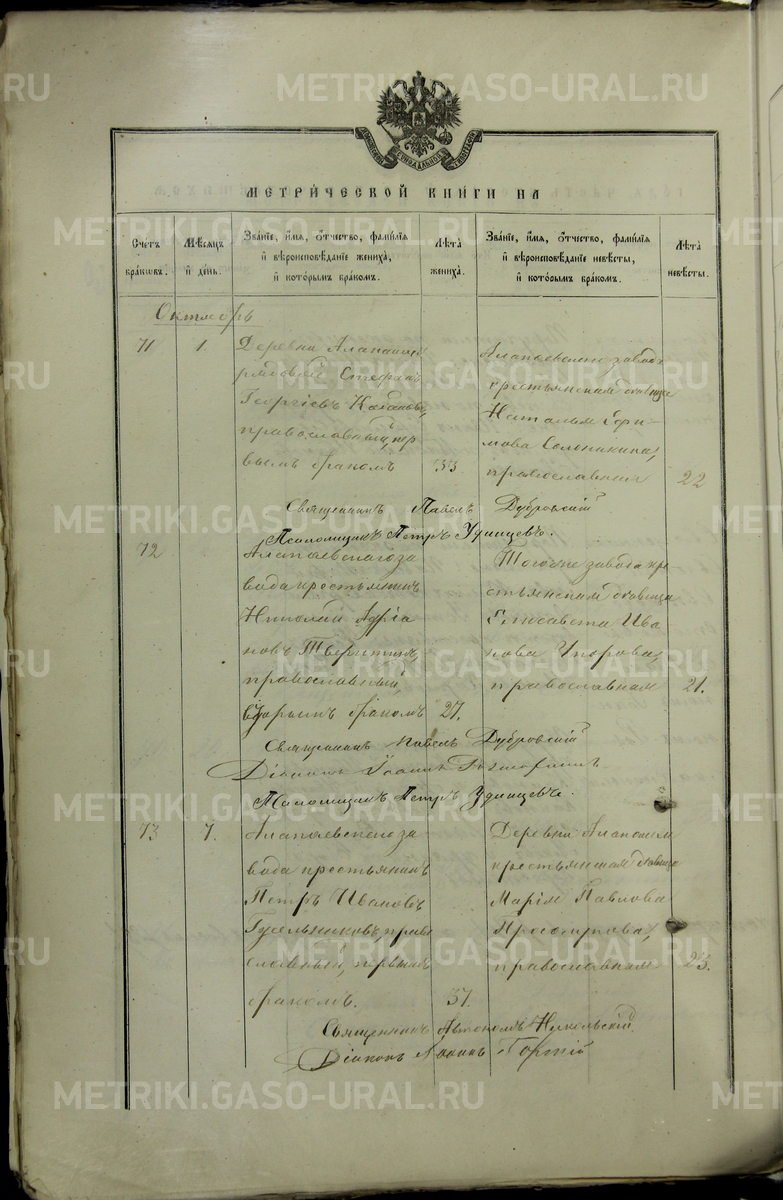 МЕТРИ́ЧЕСКОЙ КНИ́ГИ НА
Сче́тъ бра́ковъ.
Мѣ́сяцъ и҆ де́нь.
Зва́нїе, и҆́мя, ѻ҆́тчество, фами́лїя
и҆ вѣроисповѣ́данїе жениха̀,
и҆ кото́рымъ бра́комъ.
Лѣ́та жениха̀.
Зва́нїе, и҆́мя, ѻ҆́тчество, фами́лїя
и҆ вѣроисповѣ́данїе невѣ́сты,
и҆ кото́рымъ бра́комъ.
Лѣ́та невѣ́сты.
Октябрь
71
1.
Деревни
рядовой Стефанъ
Георгіевъ
православный, пер
вымъ бракомъ
33
Алапаевскаго завода
крестьянская дѣвица
Наталья Ефи-
мова
православная
22
Священникъ Павелъ Дубровскій
Псаломщикъ Петръ Удинцевъ.
72
Алапаевскаго за
вода крестьянинъ
Николай Адріа
новъ
православный,
вторымъ бракомъ
27.
Того же завода кре
стьянская дѣвица
Елисавета Ива
нова Упорова,
православная
21.
Священникъ Павелъ Дубровскій
Діаконъ Іоаннъ
Псаломщикъ Петръ Удинцевъ.
73
7.
Алапаевскаго за
вода крестьянинъ
Петръ Ивановъ
Гусельниковъ, право
славный, первымъ
бракомъ.
37.
Деревни
крестьянская дѣвица
Марія Павлова
православная
23.
Священникъ Автономъ Никольскій.
Діаконъ
METRIKI.GASO-URAL.RU